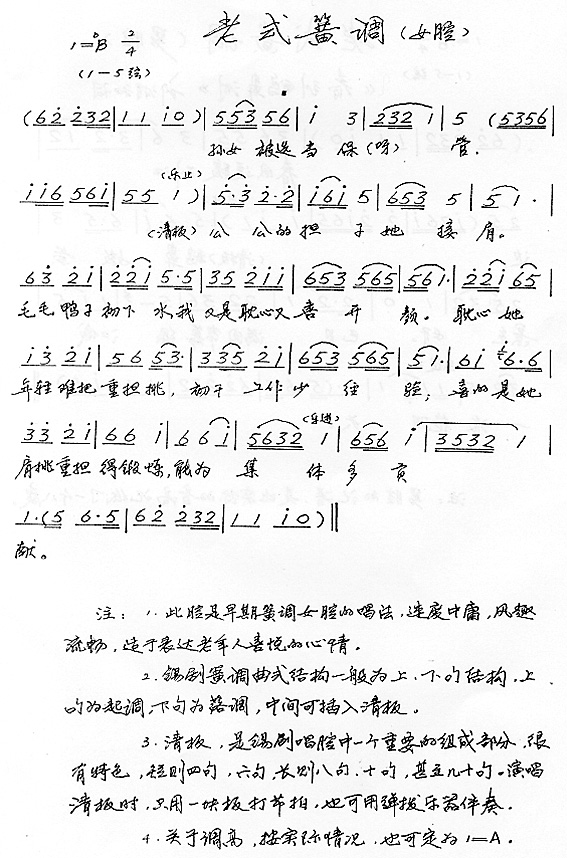 老式簧调(女腔)
1=♭B 2/4
(1—5弦)
(62 232 | 11 10) | 553 56 | 1 3 | 232 1 | 5 (5356
孙女 被选 当 保(呀) 管.
(乐止)
116 561 | 55 1) | 5·3 2·2 | 161 5 | 653 5 | 51· |
(清板)公 公的 担 子 她 接 肩。
63 21 | 221 5·5 | 35 211 | 653 565 | 561· | 221 65 |
毛毛鸭子初下 水,我又是耽心又喜 开 颜. 耽心她
13 21 | 56 53· | 335 21 | 653 565 | 51· | 61 6·6 |
年轻难把重担挑, 初干 工作少 经 验; 喜的是她
(乐进)
33 21 | 66 1 | 661 | 5632 1 | 656 1 | 3532 1 |
肩挑重担得锻炼,能为 集 体 多 贡
1·(5 6·5 | 62 232 | 11 10) ‖
献。
注: 1. 此腔是早期簧调女腔的唱法,速度中庸,风趣
流畅,适于表达老年人喜悦的心情。
2. 锡剧簧调曲式结构一般为上、下句结构,上
句为起调,下句为落调,中间可插入清板。
3. 清板,是锡剧唱腔中一个重要的组成部分,很
有特色,短则四句,六句,长则八句、十句,甚至几十句。演唱
清板时,只用一块板打节拍,也可用弹拨乐器伴奏。
4. 关于调高,按实际情况,也可定为1=A。